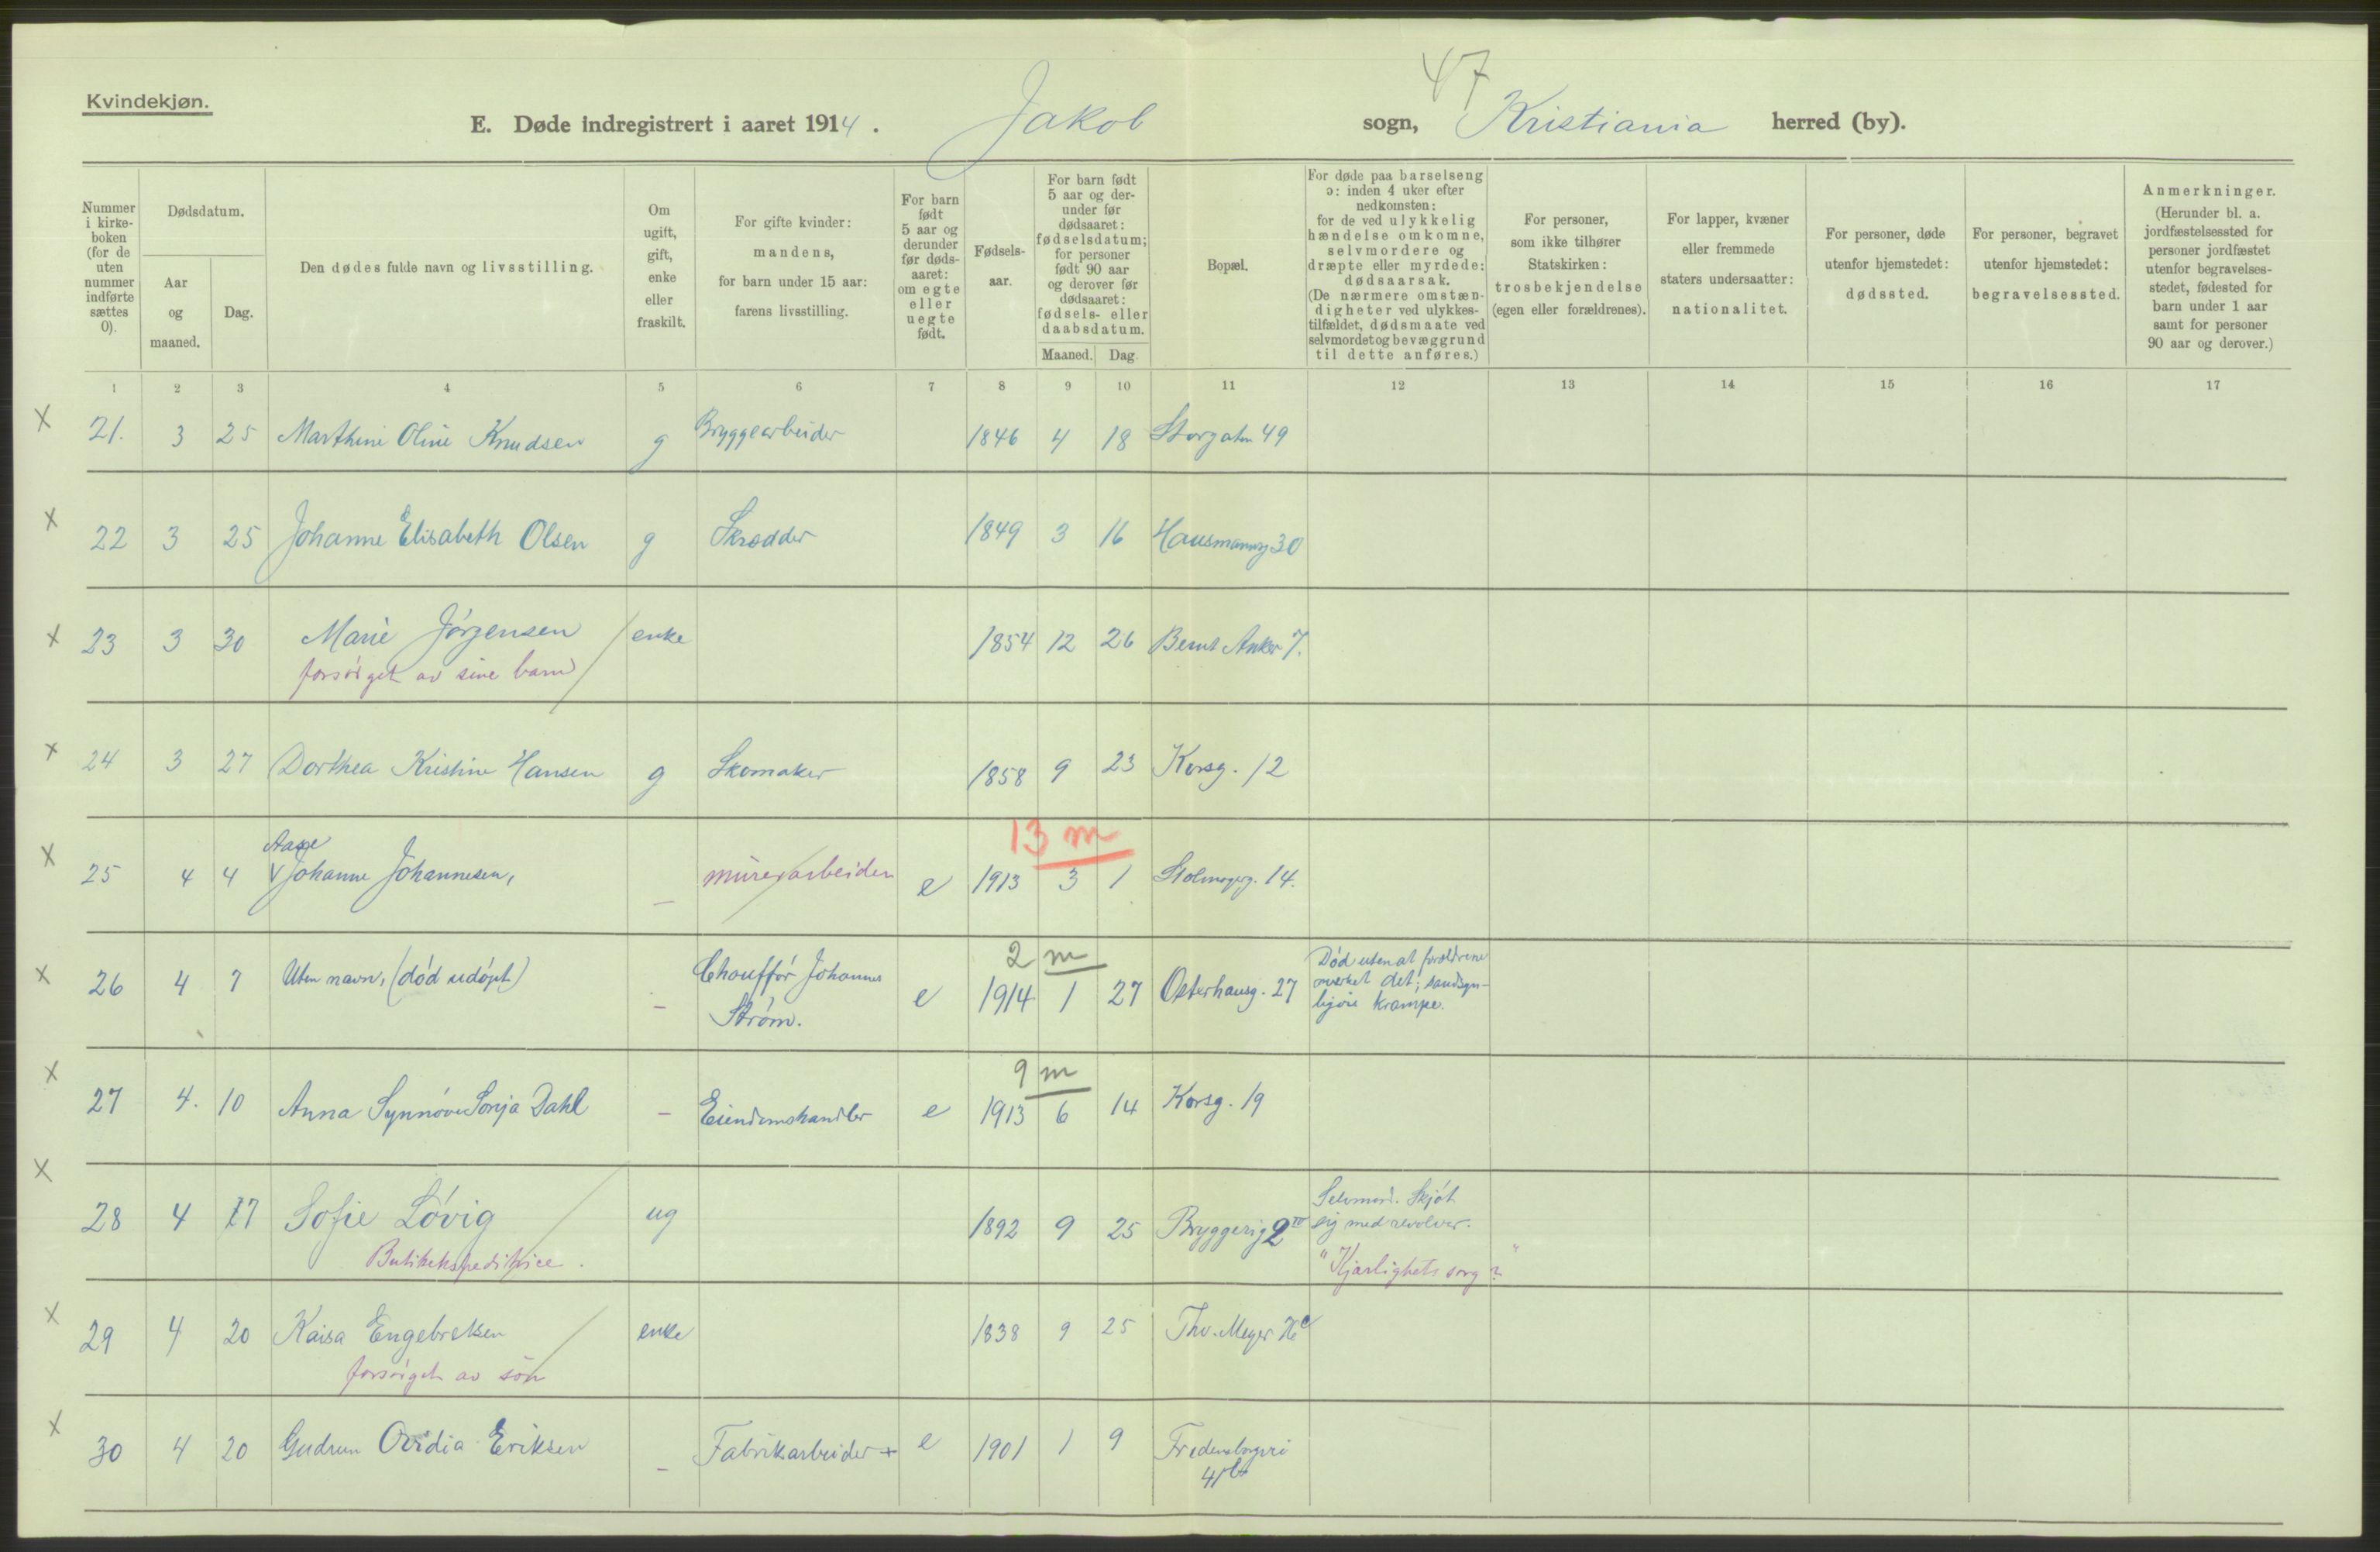 47
Kvindekjøn.
E. Døde indregistrert i aaret 1914. Jakob sogn, Kristiania herred (by).
Nummer i kirke- boken (for de uten nummer indførte sættes 0).
Dødsdatum.
Aar og maaned.
Dag.
Den dødes fulde navn og livsstilling.
Om ugift, gift, enke eller fraskilt.
For gifte kvinder: mandens, for barn under 15 aar: farens livsstilling.
For barn født 5 aar og derunder før døds- aaret: om egte eller uegte født.
Fødsels- aar.
For barn født 5 aar og der- under før dødsaaret: fødselsdatum; for personer født 90 aar og derover før dødsaaret: fødsels- eller daabsdatum.
Maaned. Dag.
Bopæl.
For døde paa barselseng ɔ: inden 4 uker efter nedkomsten: for de ved ulykkelig hændelse omkomne, selvmordere og dræpte eller myrdede: dødsaarsak. (De nærmere omstæn- digheter ved ulykkes- tilfældet, dødsmaate ved selvmordet og bevæggrund til dette anføres.)
For personer, som ikke tilhører Statskirken: trosbekjendelse (egen eller forældrenes).
For lapper, kvæner eller fremmede staters undersaatter: nationalitet.
For personer, døde utenfor hjemstedet: dødssted.
For personer, begravet utenfor hjemstedet: begravelsessted.
Anmerkninger. (Herunder bl. a. jordfæstelsessted for personer jordfæstet utenfor begravelses- stedet, fødested for barn under 1 aar samt for personer 90 aar og derover.)
1 2 3 4 5 6 7 8 9 10 11 12 13 14 15 16 17
X 21. 3 25 Marthine Oline Knudsen g Bryggearbeider 1846 4 18 Storgaten 49
X 22 3 25 Johanne Elisabeth Olsen g Skrædder 1849 3 16 Hausmannsg 30
X 23 3 30 Marie Jørgensen enke 1854 12 26 Bernt Anker 7.
forsørget av sine barn
X 24 3 27 Dorthea Kristine Hansen g Skomaker 1858 9 23 Korsg. 12
13 m
Aase
X 25 4 4 Johanne Johannesen, – murerarbeider e 1913 3 1 Holmsgg. 14.
2 m
X 26 4 7 Uten navn, (død udøpt) – Chauffør Johannes Strøm. e 1914 1 27 Osterhausg. 27 Død uten at forældrene merket det; sandsyn- ligvis krampe.
9 m
X 27 4. 10 Anna Synnøve Sonja Dahl – Eiendomshandler e 1913 6 14 Korsg. 19
X 28 4 17 Sofie Løvig ug 1892 9 25 Bryggerig 2 IV Selvmord. Skjøt sig med revolver.
Butikekspeditrice. "Kjærlighetssorg?"
X 29 4 20 Kaisa Engebretsen enke 1838 9 25 Thv. Meyer
forsørget av søn
X 30 4 20 Gudrun Ovidia Eriksen – Fabrikarbeider + e 1901 1 9 Fredensborgvei
41b